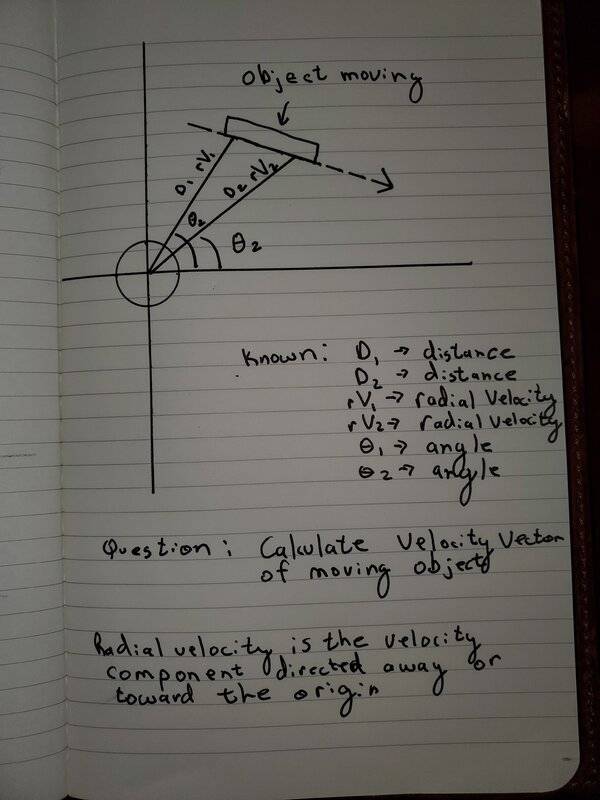 Object moving
D1 rV1
D2 rV2
θ2
θ2
Known: D1 → distance
D2 → distance
rV1 → radial Velocity
rV2 → radial Velocity
θ1 → angle
θ2 → angle
Question: Calculate Velocity Vector
of moving object
Radial velocity is the velocity
component directed away or
toward the origin